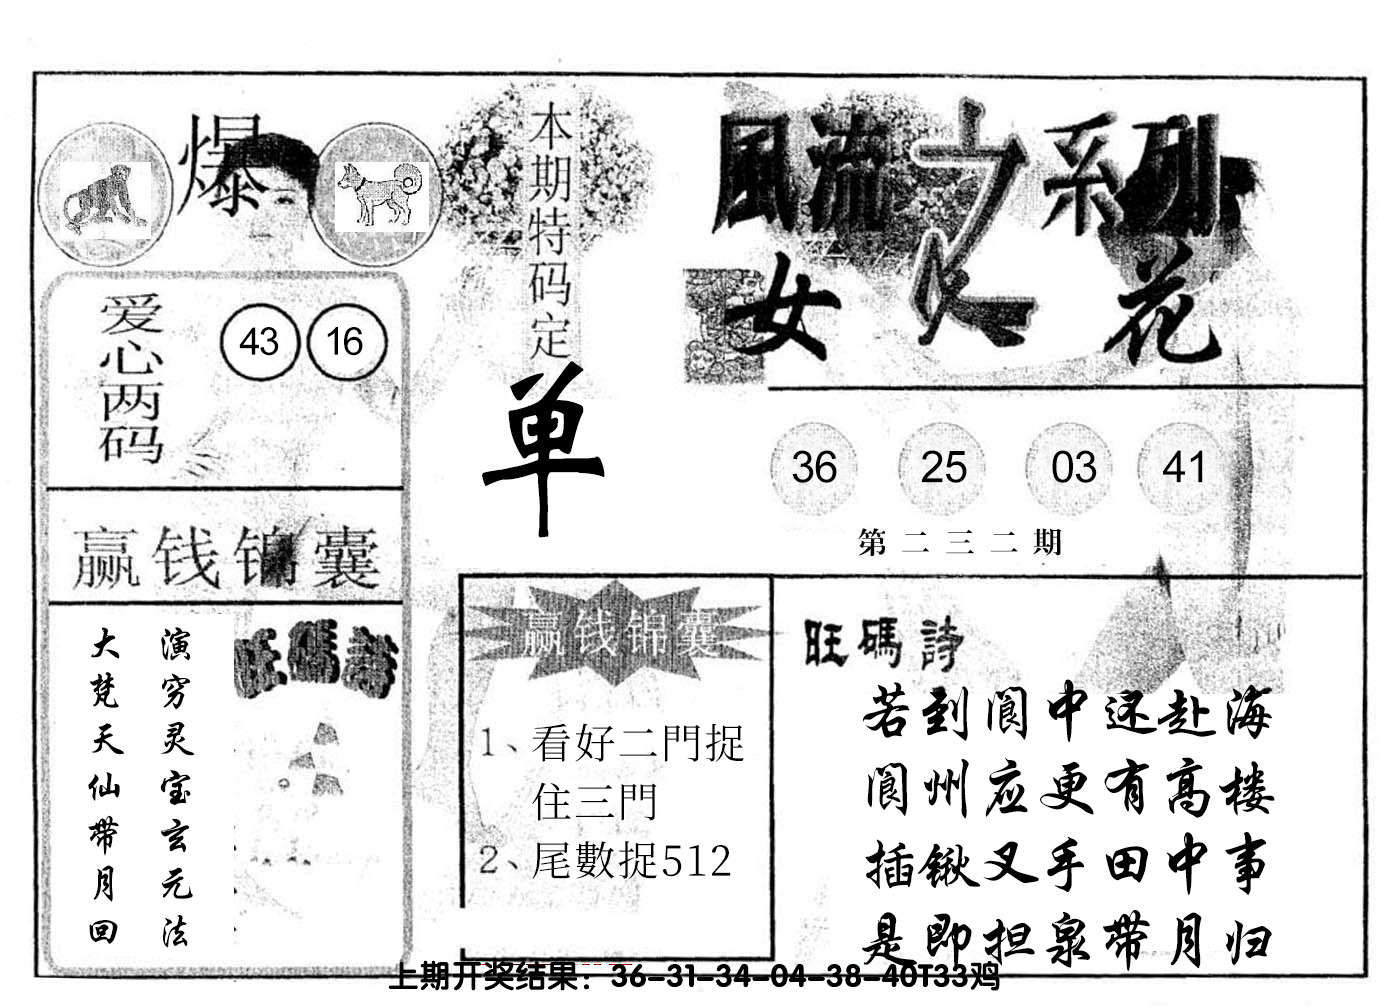 爆
爱心两码
43 16
赢钱锦囊
旺碼詩
演穷灵宝玄元法
大梵天仙带月回
本期特码定
单
風流之系列
女人花
36 25 03 41
第二三二期
赢钱锦囊
1、看好二門捉
住三門
2、尾數捉512
旺碼詩
若到阆中还赴海
阆州应更有高楼
插锹叉手田中事
是即担泉带月归
上期开奖结果：36-31-34-04-38-40T33鸡